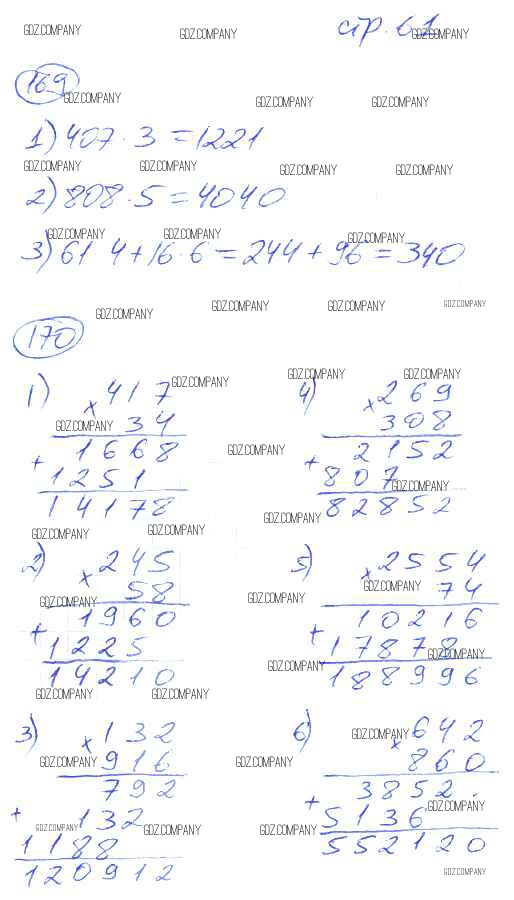 GDZ.COMPANY GDZ.COMPANY стр. 61 GDZ.COMPANY
169 GDZ.COMPANY GDZ.COMPANY GDZ.COMPANY
1) 407 · 3 = 1221
GDZ.COMPANY GDZ.COMPANY GDZ.COMPANY GDZ.COMPANY
2) 808 · 5 = 4040
GDZ.COMPANY GDZ.COMPANY GDZ.COMPANY
3) 61 4 + 16 · 6 = 244 + 96 = 340
GDZ.COMPANY GDZ.COMPANY GDZ.COMPANY GDZ.COMPANY
170
GDZ.COMPANY GDZ.COMPANY GDZ.COMPANY
1) × 417
34
GDZ.COMPANY
+ 1668
1251
14178
4) × 269
308
+ 2152
807
82852
GDZ.COMPANY GDZ.COMPANY GDZ.COMPANY
GDZ.COMPANY GDZ.COMPANY
2) × 245
58
GDZ.COMPANY
+ 1960
1225
14210
GDZ.COMPANY GDZ.COMPANY
5) × 2554
74
GDZ.COMPANY GDZ.COMPANY
+ 10216
17878
188996
GDZ.COMPANY GDZ.COMPANY
3) × 132
916
GDZ.COMPANY
792
+ 132
1188
120912
GDZ.COMPANY GDZ.COMPANY
6) × 642
860
GDZ.COMPANY GDZ.COMPANY
+ 3852
5136
552120
GDZ.COMPANY GDZ.COMPANY
GDZ.COMPANY